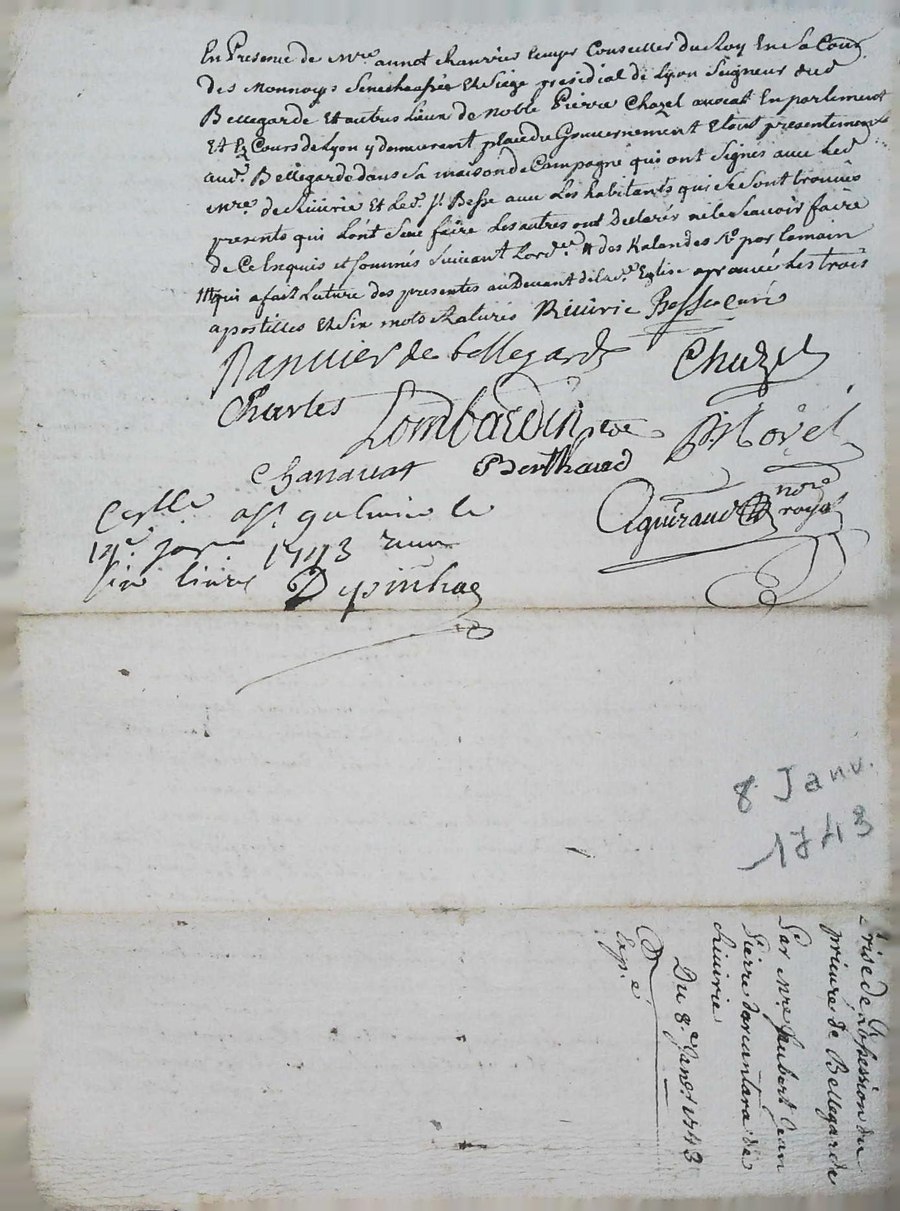 En Presence de Mre annot chanrier Conseiller du Roy En la Cour
des Monnoys Senechaussée Et Siege presidial de Lyon Seigneur dud
Bellegarde Et autres Lieux de Noble Pierre Chazel avocat En parlement
Et Cours de Lyon y demeurent place du Gouvernement Etant presentement
aud. Bellegarde dans Sa maison de Campagne qui ont Signés avec Led
Mre. de Riuirie Et Led. Sr. Besse avec Les habitants qui Se Sont trouvés
presents qui L'ont Sceu faire Les autres ont Declarés ne le Scavoir faire
de Ce Enquis et Sommés Suivant Lord. des Kalandes par Lemain
qui a fait Lecture des presentes au Devant de Lad. Eglise aprouvée Les trois
apostilles Et Six mots Raturés Riuirie Besse curé
Ranvier de bellegarde Chazel
Charles Lombardin Morel
Chanavat Berthaud
Aguiraud nore royal
le
14e janv 1743
six livres Depinhac
8 Janv.
1743
Prise de possession du
prieuré de Bellegarde
Par Mre Jaubert Jean
Pierre Darcantara de
Riuirie
Du 8.e Janer 1743
Exp.e